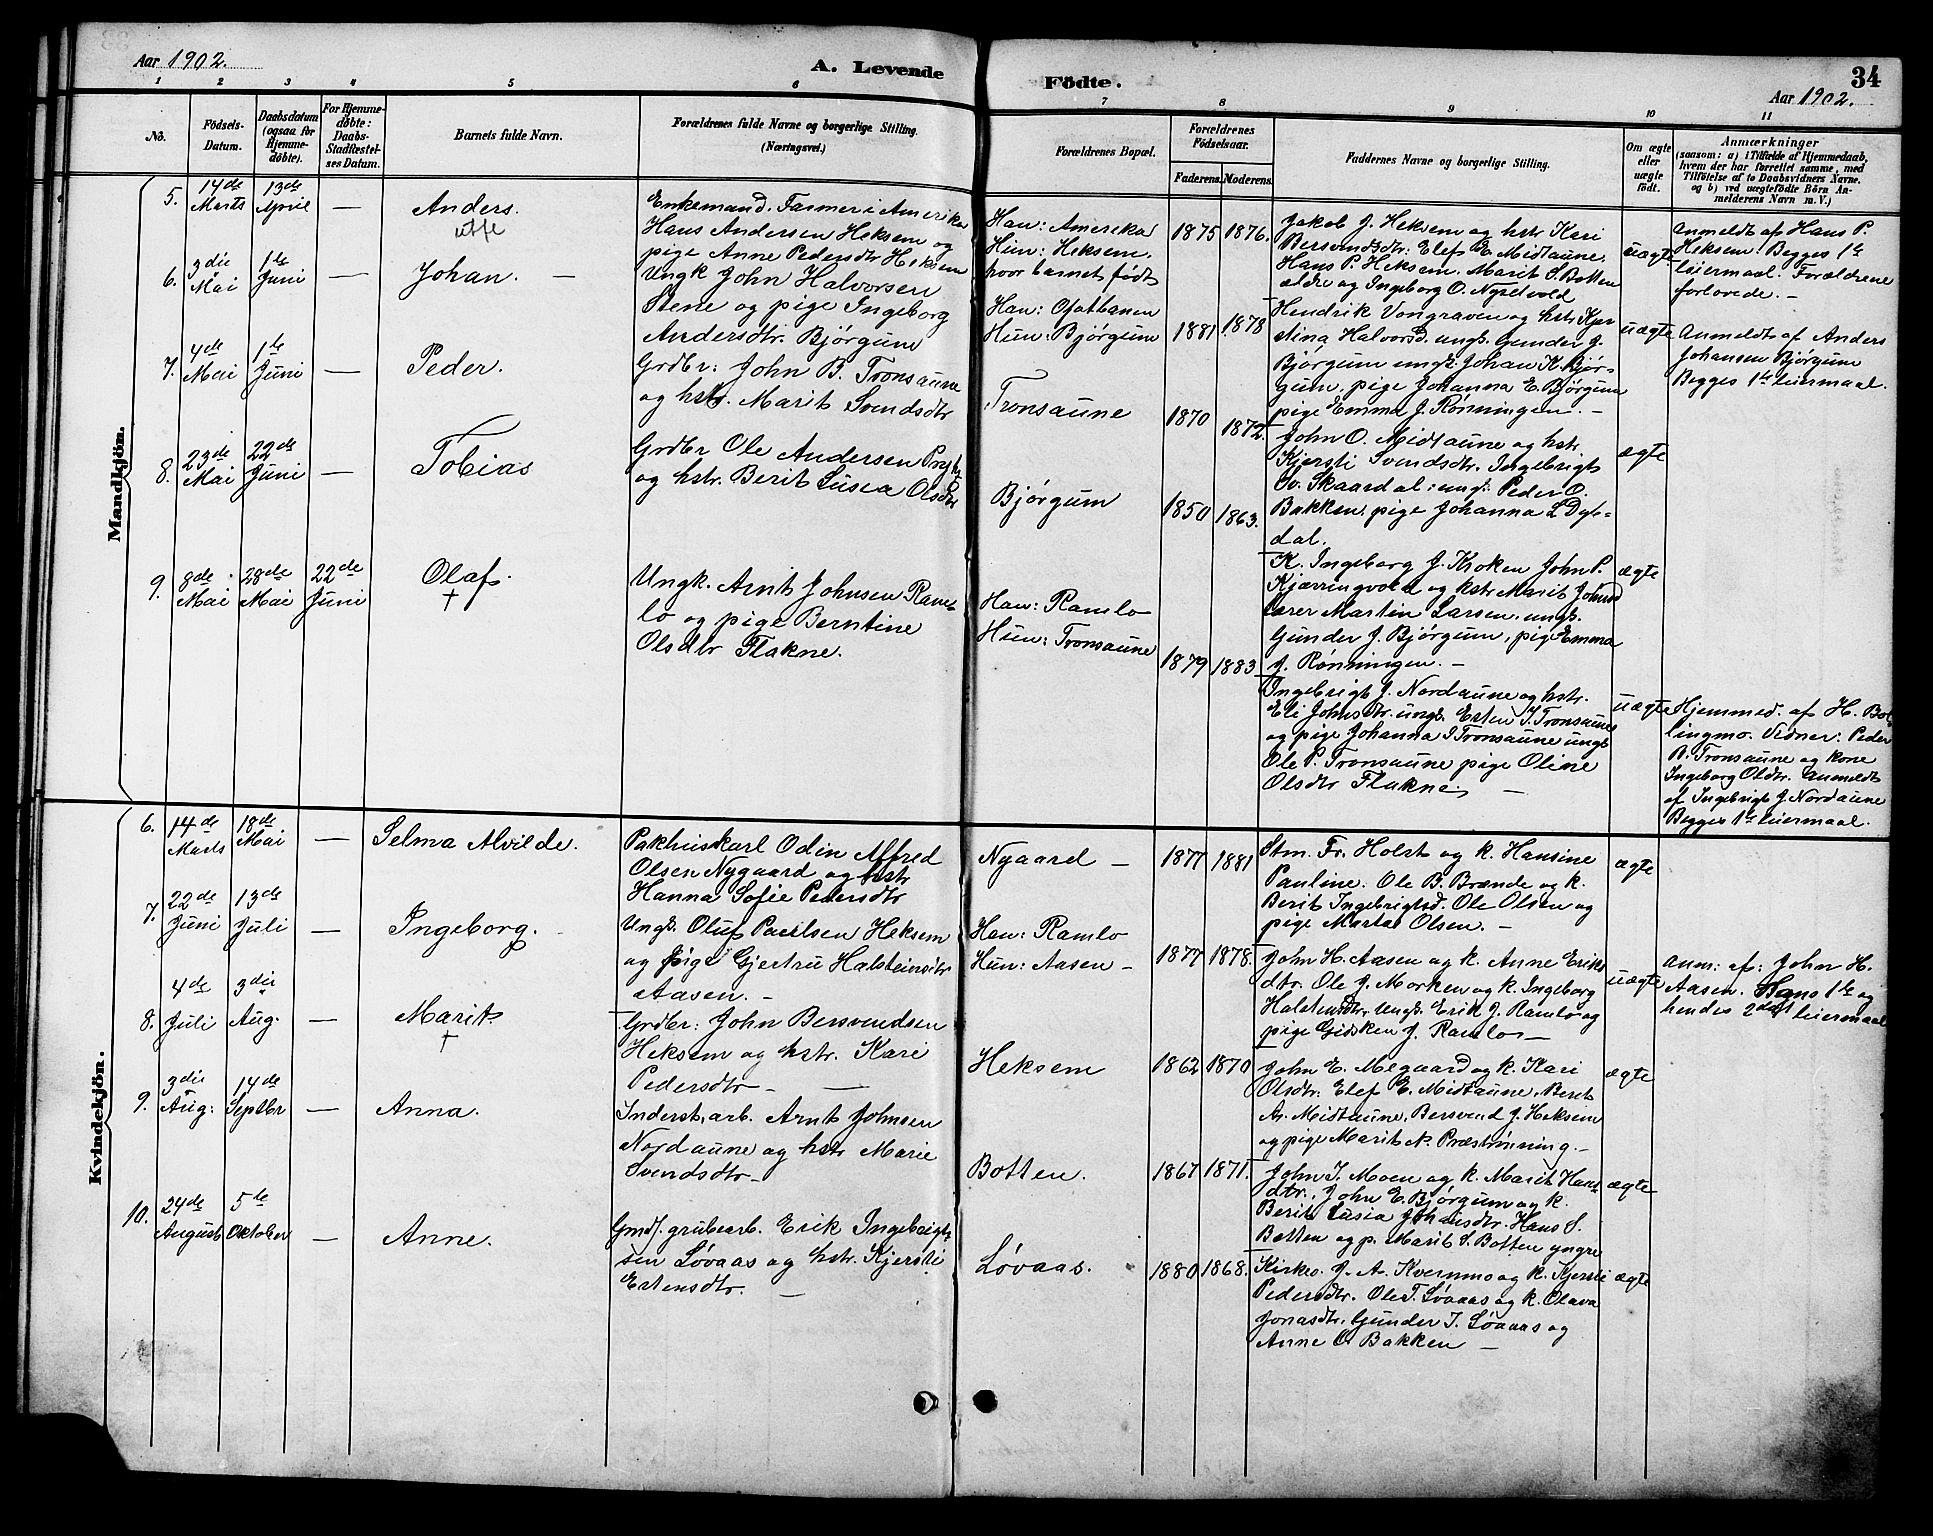 Aar 1902.
A. Levende
Födte.
34
Aar 1902.
1 2 3 4 5 6 7 8 9 10 11
No.
Födsels-
Datum.
Daabsdatum
(ogsaa for
Hjemme-
døbte).
For Hjemme-
døbte:
Daabs-
Stadfæstel-
ses Datum.
Barnets fulde Navn.
Forældrenes fulde Navne og borgerlige Stilling.
(Næringsvei.)
Forældrenes Bopæl.
Forældrenes
Fødselsaar.
Faderens. Moderens.
Faddernes Navne og borgerlige Stilling.
Om ægte
eller
uægte
født.
Anmærkninger
(saasom: a) i Tilfælde af Hjemmedaab,
hvem der har forrettet samme, med
Tilføielse af to Daabsvidners Navne.
og b) ved uægtefødte Børn An-
melderens Navn m. V.)
Mandkjön.
5.
14de
Marts
13de
April
—
Anders.
Enkemand. Farmer i Amerika
Hans Andersen Heksem og
pige Anne Pedersdtr Heksem
Han: Amerika
Hun: Heksem,
hvor barnet født
1875
1876.
Jakob J. Heksem og hstr Kari
Bersvendsdtr. Elef E. Midtaune.
Hans P. Heksem. Marit S. Botten
ældre og Ingeborg O. Nysetvold
uægte
Anmeldt af Hans P.
Heksem. Begges 1te
leiermaal. Forældrene
forlovede. —
6.
3die
Mai
1te
Juni
—
Johan. —
Ungk John Halvorsen
Stene og pige Ingeborg
Andersdtr. Bjørgum
Han: Ofotbanen
Hun: Bjørgum
1881
1878
Hendrik Vongraven og hstr Kjer
stina Halvorsd. ungk. Gunder J.
Bjørgum ungk. Johan K. Bjør-
gum, pige Johanna E. Bjørgum
pige Emma J. Rønningen. —
uægte
Anmeldt af Anders
Johansen Bjørgum
Begges 1te leiermaal.
7.
4de
Mai
1te
Juni
—
Peder.
Grdbr: John B. Tronsaune
og hstr. Marit Svendsdtr
Tronsaune
1870
1872.
John O. Midtaune og hstr
Kjersti Svendsdtr. Ingebrigt
Sv. Skaardal: ungk. Peder O.
Bakken, pige Johanna L Dyb-
dal.
ægte
8.
23de
Mai
22de
Juni
—
Tobias
Grdbr Ole Andersen
og hstr. Berit Lusia Olsdtr
Bjørgum
1850
1863.
K. Ingeborg J. Kroken John P.
Kjærringvold og hstr Marit Johnsd
Lærer Martin Larsen, ungk.
Gunder J. Bjørgum, pige Emma
J. Rønningen. —
ægte
9.
8de
Mai
28de
Mai
22de
Juni
Olaf.
†
Ungk. Arnt Johnsen Ram-
lo og pige Berntine
Olsdtr Flakne.
Han: Ramlo
Hun: Tronsaune
1879
1883
Ingebrigt J. Nordaune og hstr.
Eli Johnsdtr. ungk. Esten I. Tronsaune
og pige Johanna I Tronsaune ungk
Ole P. Tronsaune pige Oline
Olsdtr Flakne. —
uægte
Hjemmed. af H. Bol
lingmo. Vidner: Peder
B. Tronsaune og kone
Ingeborg Oldtr. Anmeldt
af Ingebrigt J. Nordaune
Begges 1te leiermaal.
Kvindekjön.
6.
14de
Marts
18de
Mai
—
Selma Alvilde.
Pakhuskarl Odin Alfred
Olsen Nygaard og hstr
Hanna Sofie Pedersdtr
Nygaard —
1877
1881
Stm. Fr. Holst og k. Hansine
Pauline. Ole B. Brænde og k.
Berit Ingebrigtsd. Ole Olsen og
pige Marta Olsen. —
ægte
7.
22de
Juni
13de
Juli
—
Ingeborg.
Ungk. Oluf Paulsen Heksem
og pige Gjertru Halsteinsdtr
Aasen. —
Han: Ramlo
Hun: Aasen —
1877
1878.
John H. Aasen og k. Anne Eriks
dtr. Ole J. Morken og k. Ingeborg
Halstensdtr. ungk. Erik J. Ramlo og
pige Gidsken J. Ramlo —
uægte
Anm: af: John H.
Aasen. Hans 1te og
hendes 2det leiermaal
8.
4de
Juli
3die
Aug.
—
Marit
†
Grdbr: John Bersvendsen
Heksem og hstr. Kari
Pedersdtr — —
Heksem
1862
1870
John E. Megaard og k. Kari
Olsdtr. Elef E. Midtaune. Berit
A. Midtaune. Bersvend J. Heksem
og pige Marit N. Præstrønning. —
ægte
9.
3die
Aug:
14de
Septbr
—
Anna.
Inderst, arb. Arnt Johnsen
Nordaune og hstr Marie
Svendsdtr —
Botten.
1867
1871.
John I. Moen og k. Marit Hans
dtr., John E. Bjørgum og k.
Berit Lusia Johansdtr. Hans S.
Botten og p. Marit S. Botten yngre
ægte
10.
24de
August
5te
Oktober
—
Anne.
Gmd/. grubearb. Erik Ingebrigt-
sen Løvaas og hstr. Kjersti
Estensdtr. —
Løvaas.
1880
1868.
Kirkeo. J. A. Kvernmo og k. Kjersti
Pedersdtr. Ole T. Løvaas og k. Olava
Jonasdtr. Gunder I. Løvaas og
Anne O. Bakken —
ægte